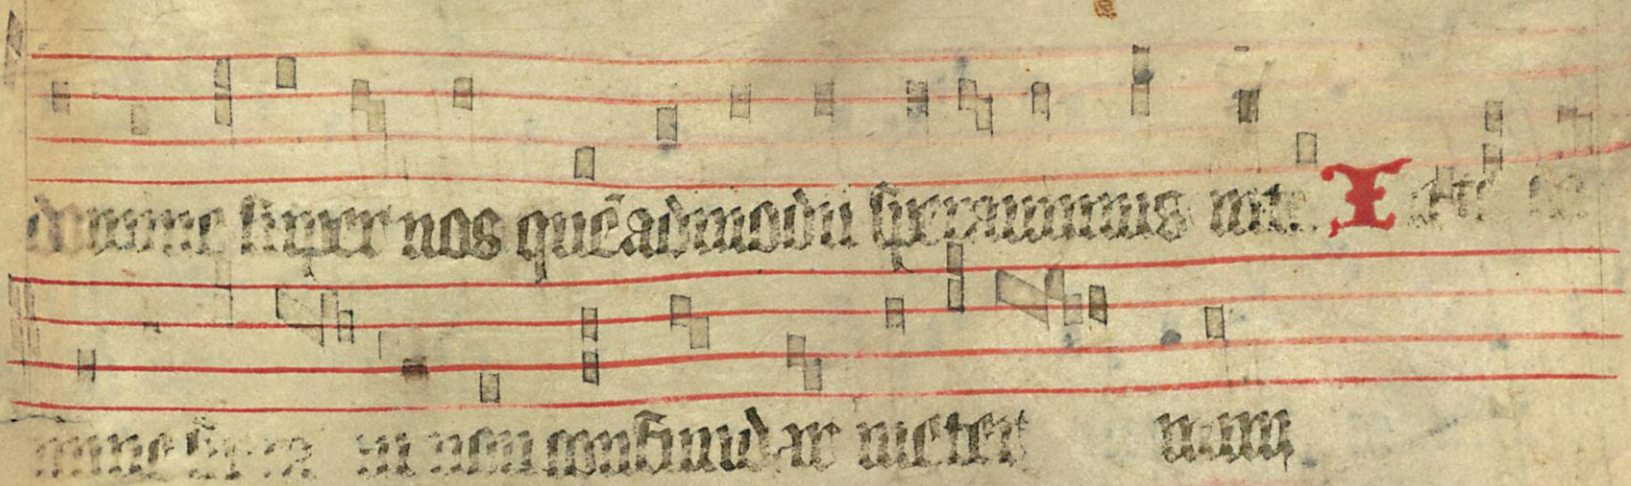 domine super nos quēadmodū sperauimus in te. I n te do
mine speraui non confundar in eter num